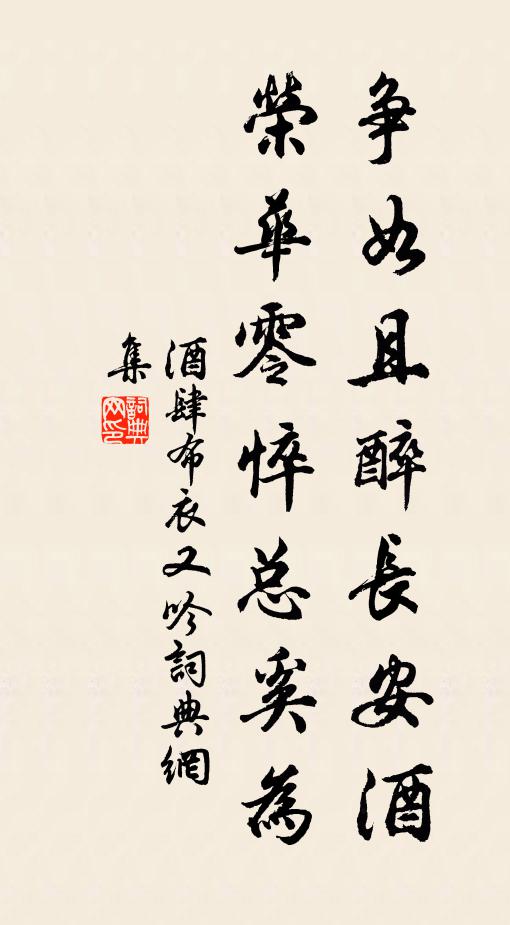 争如且醉長安酒
榮華零悴总奚為
酒肆布衣又吟詞典網
集
詞典
网印